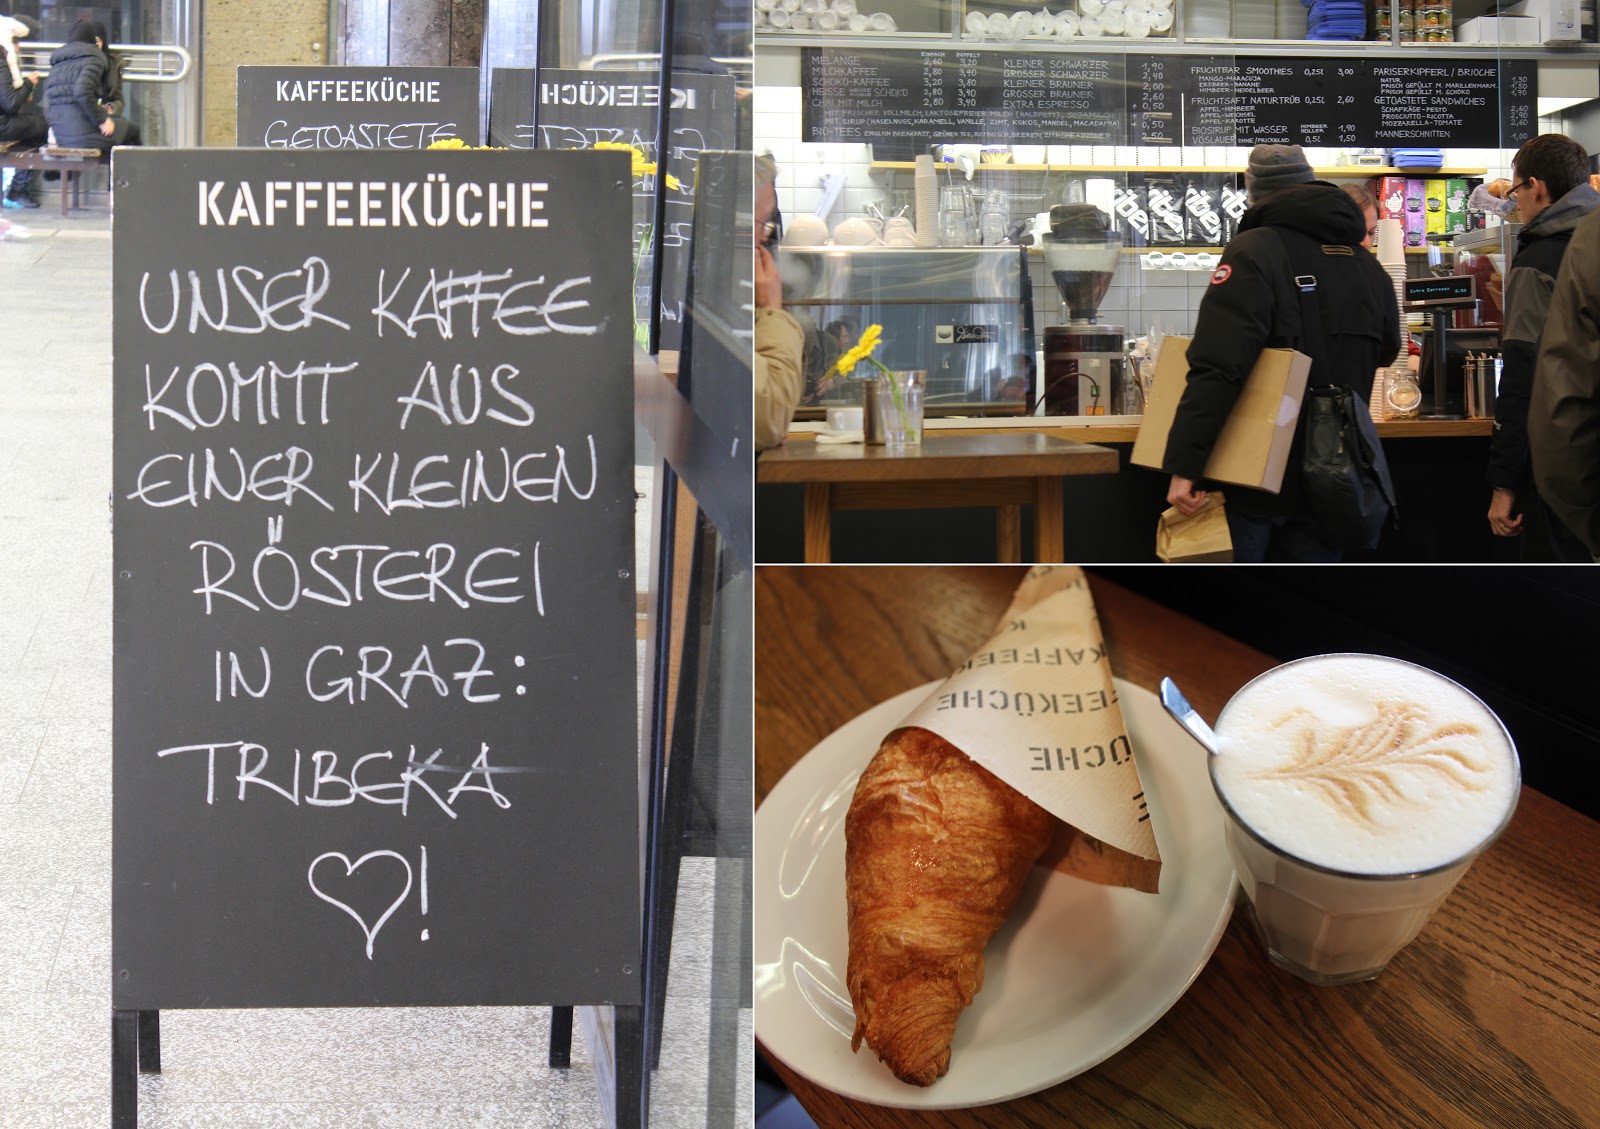 KAFFEEKÜCHE
GETOASTETE
KAFFEEKÜCHE
UNSER KAFFEE
KOMMT AUS
EINER KLEINEN
RÖSTEREI
IN GRAZ:
TRIBEKA
♡!
EINFACH DOPPELT
MELANGE 2,60 3,20
MILCHKAFFEE 2,80 3,40
SCHOKO-KAFFEE 3,20 3,80
HEISSE SCHOKO 2,80 3,40
CHAI MIT MILCH 2,80 3,40
KLEINER SCHWARZER 1,90
GROSSER SCHWARZER 2,40
KLEINER BRAUNER 2,00
GROSSER BRAUNER 2,60
EXTRA ESPRESSO + 0,50
MIT FRISCHER VOLLMILCH, LAKTOSEFREIER MILCH (HALBFETT), SOJAMILCH
MIT SIRUP (HASELNUSS, KARAMELL, VANILLE, ZIMT, KOKOS, MANDEL, MACADAMIA) + 0,50
BIO-TEES ENGLISH BREAKFAST, GRÜNER TEE, ROTBUSCH, BEEREN, ZITRONE/INGWER 2,50
FRUCHTBAR SMOOTHIES 0,25l 3,00
MANGO-MARACUJA
ERDBEER-BANANE
HIMBEER-HEIDELBEER
FRUCHTSAFT NATURTRÜB 0,25l 2,60
APFEL-HIMBEER
APFEL-WEICHSEL
APFEL-KAROTTE
BIOSIRUP MIT WASSER HIMBEER HOLLER 0,5l 1,90
VÖSLAUER OHNE/PRICKELND 0,5l 1,50
PARISERKIPFERL / BRIOCHE
NATUR 1,30
FRISCH GEFÜLLT M. MARILLENMARM. 1,50
FRISCH GEFÜLLT M. SCHOKO 1,90
GETOASTETE SANDWICHES
SCHAFKÄSE-PESTO 2,60
PROSCIUTTO-RICOTTA 2,90
MOZZARELLA-TOMATE 2,60
MANNERSCHNITTEN 1,00
Extra Espresso
0.50
KAFFEEK
FEEKÜCHE
ÜCHE